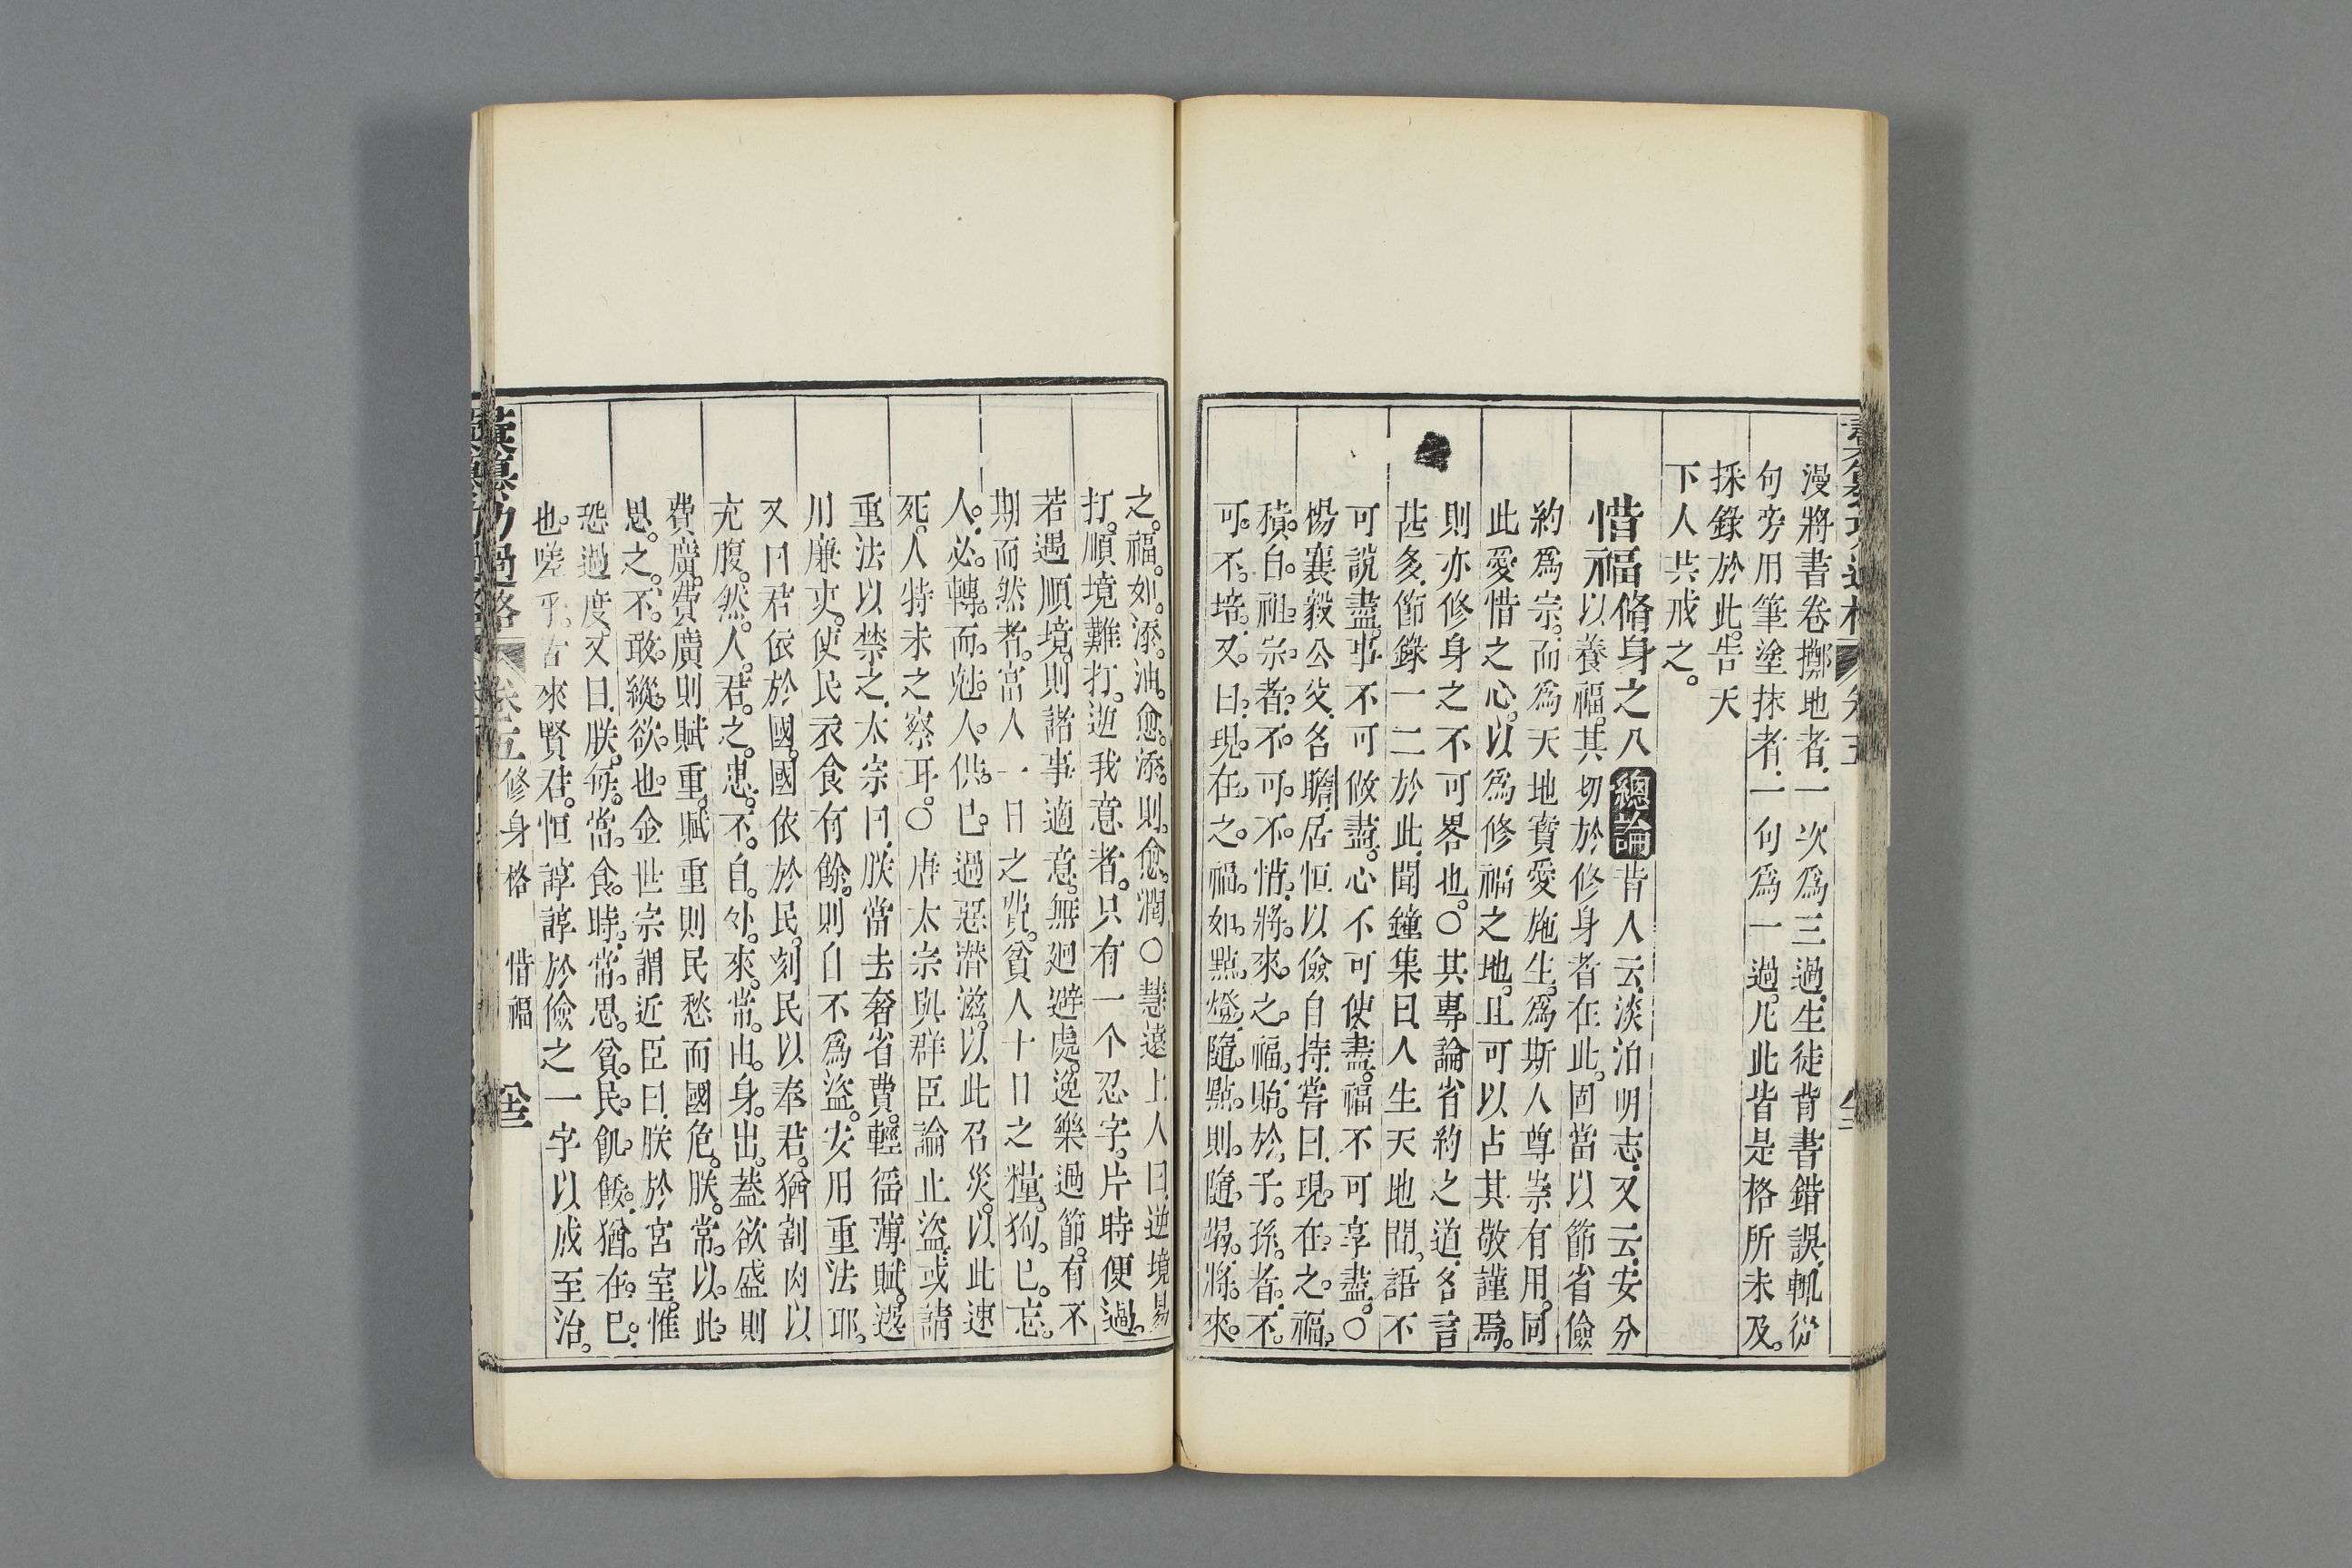 漫將書卷擲地者．一次為三過．生徒背書錯誤．輒從
句旁用筆塗抹者．一句為一過．凡此皆是格所未及．
採錄於此．告天
下人共戒之。
惜福脩身之八 總論 昔人云．淡泊明志．又云．安分
以養福．其切於修身者在此．固當以節省儉
約為宗．而為天地寶愛施生．為斯人尊崇有用．同
此愛惜之心．以為修福之地．且可以占其敬謹焉．
則亦修身之不可畧也。○其專論省約之道．各言
甚多．節錄一二於此．聞鐘集曰．人生天地間．語不
可說盡．事不可做盡．心不可使盡．福不可享盡。○
楊襄毅公父．名瞻．居恒以儉自持．嘗曰．現在之福．
積自祖宗者．不可不惜．將來之福．貽於子孫者．不
可不培．又曰．現在之福．如點燈．隨點則隨竭．將來
之福．如添油．愈添則愈潤○慧遠上人曰．逆境易
打．順境難打．逆我意者．只有一个忍字．片時便過．
若遇順境．則諸事適意．無迴避處．逸樂過節．有不
期而然者．富人一日之費．貧人十日之糧．狥己忘
人．必轉而尅人供己．過惡潜滋．以此召災．以此速
死．人特未之察耳。○唐太宗與群臣論止盜．或請
重法以禁之．太宗曰．朕當去奢省費．輕徭薄賦．選
用廉吏．使民衣食有餘．則自不為盜．安用重法耶．
又曰君依於國．國依於民．刻民以奉君．猶割肉以
充腹．然人君之患．不自外來．常由身出．葢欲盛則
費廣．費廣則賦重．賦重則民愁而國危．朕常以此
思之．不敢縱欲也．金世宗謂近臣曰．朕於宮室．惟
恐過度．又曰．朕每當食時．常思貧民飢餒．猶在己
也．嗟乎．古來賢君．恒諄諄於儉之一字以成至治．
彙纂功過格 卷五 修身格 惜福 八十三